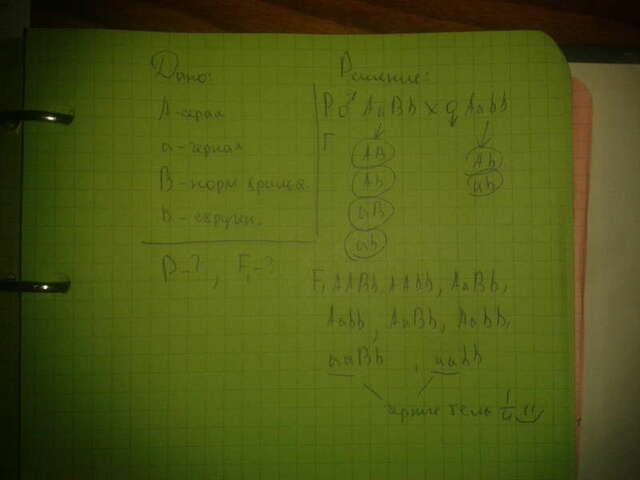 Дано:
A - серая
a - черная
B - норм крылья
b - скручен.
P-?, F₁-?
Решение:
P ♂ AaBb x ♀ Aabb
Г
AB
Ab
aB
ab
Ab
ab
F₁ AABb, AAbb, AaBb,
Aabb, AaBb, Aabb,
aaBb, aabb
черные тела 1/4